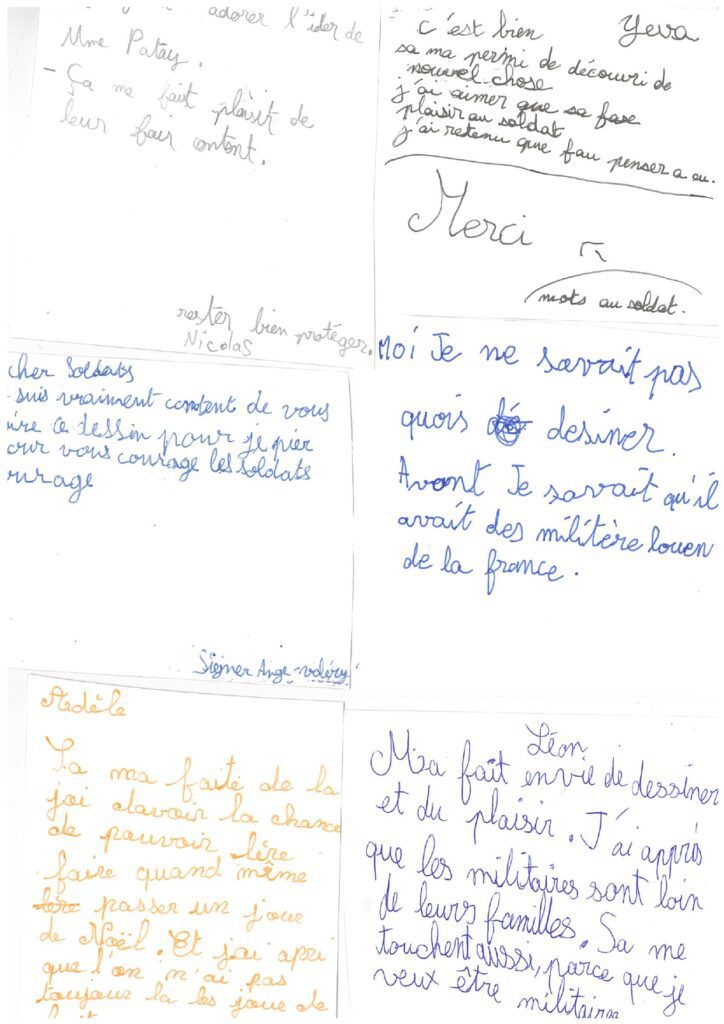 adorer l'ider de
Mme Patay.
- Ça me fait plaisir de
leur fair content.
rester bien protéger.
Nicolas
Yeva
c'est bien
sa ma permi de découvri de
nouvel chose
j'ai aimer que sa fase
plaisir au soldat
j'ai retenu que fau penser a eu.
Merci
mots au soldat.
cher Soldats
suis vraiment content de vous
ire ce dessin pour je prier
our vous courage les soldats
urage
Signer Ange-valéry
Moi Je ne savait pas
quois desiner.
Avant Je savait qu'il
avait des militère louen
de la france.
Adèle
Sa ma faite de la
joi davoir la chance
de pouvoir lére
faire quand même
passer un jour
de Noël. Et j'ai apri
que l'on n'ai pas
toujour la les joue de
Léon
Ma fait envie de dessiner
et du plaisir. J'ai appris
que les militaires sont loin
de leurs familles. Sa me
touchent aussi, parce que je
veux être militaire